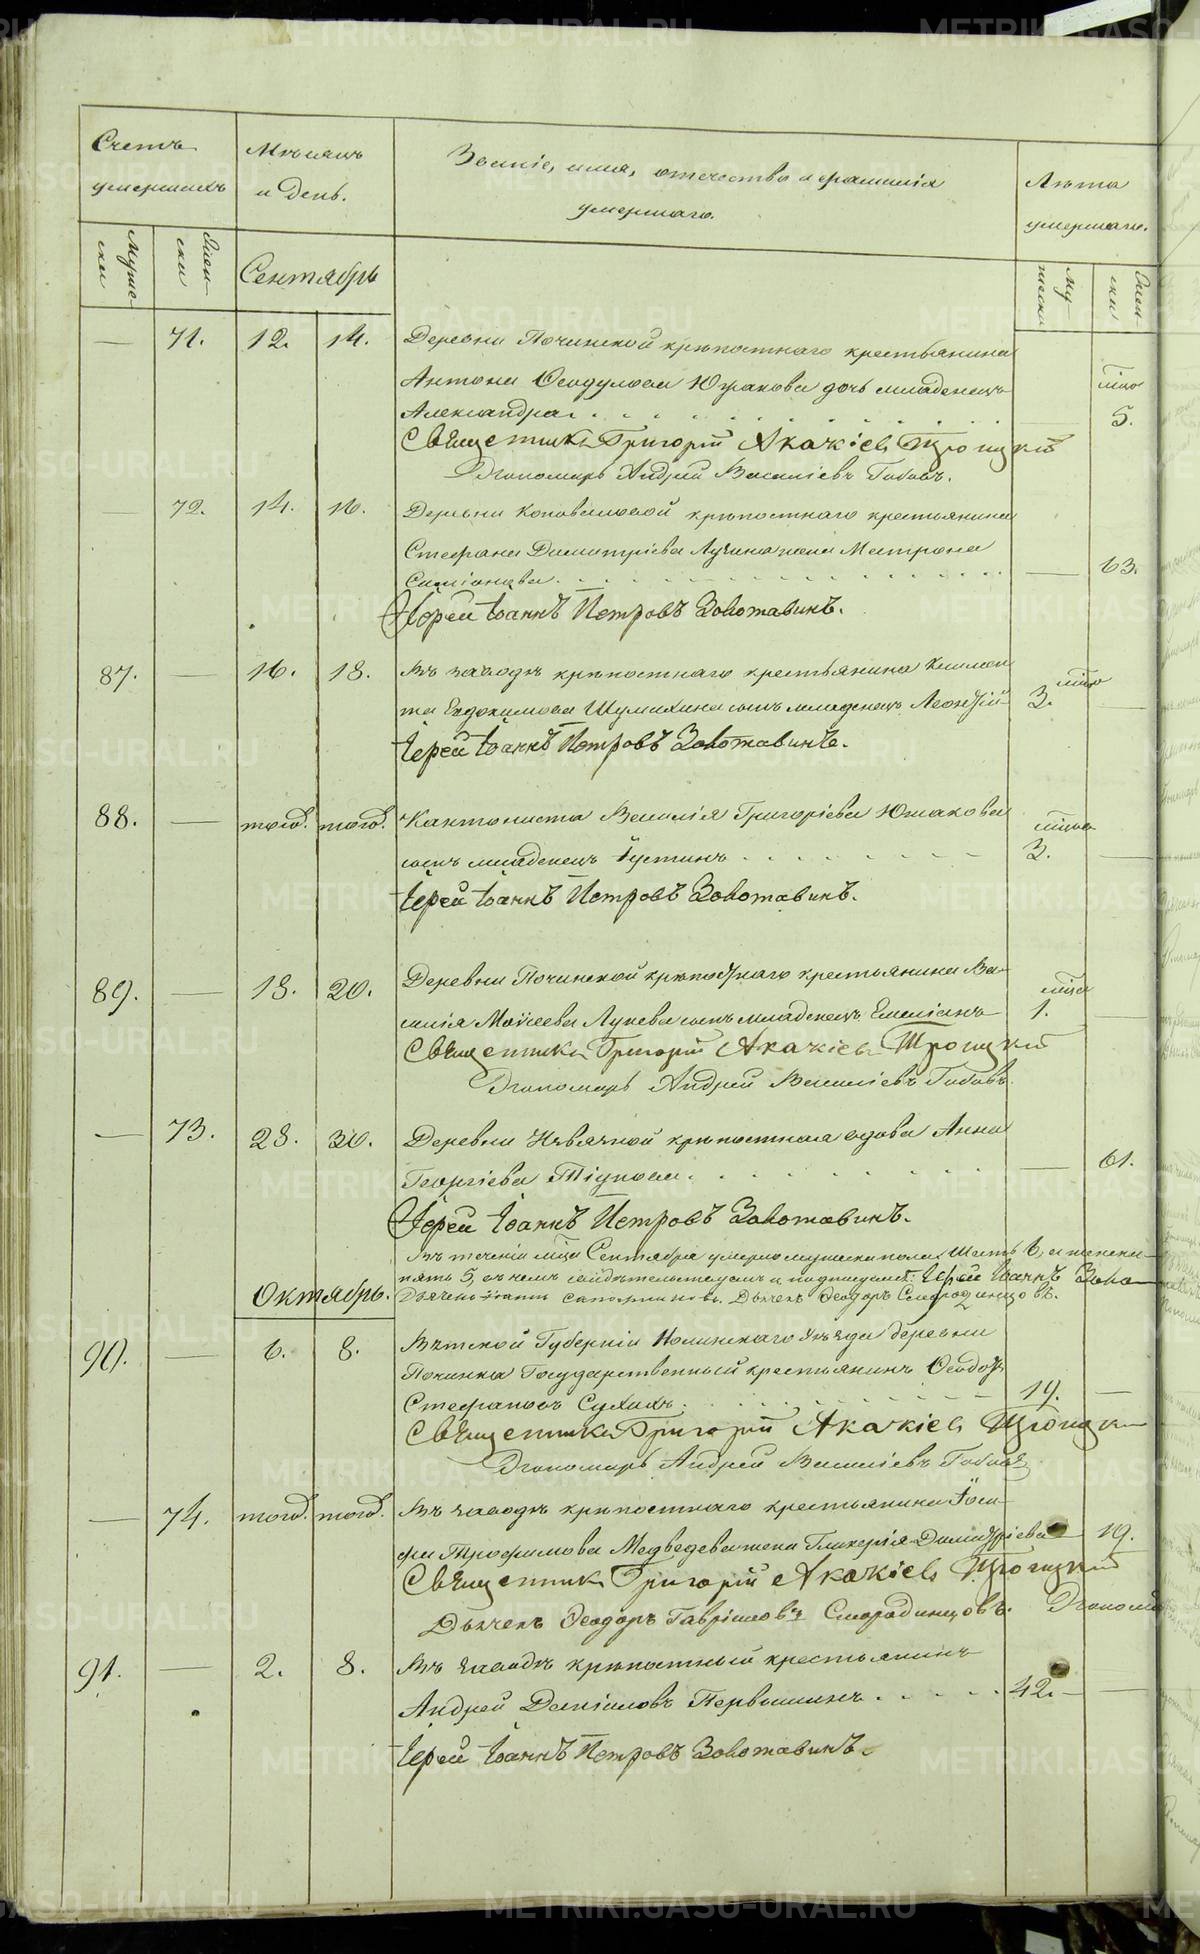 Счетъ умершихъ
Мѣсяцъ и день.
Званіе, имя, отчество и фамилія умершаго.
Лѣта умершаго.
Муже-ски
Жен-ски
Сентябрь
Му-жески
Жен-ски
— 71. 12. 14. Деревни Починской крѣпостнаго крестьянина
Антона Ѳеодулова дочь младенецъ мцо
Александра 5.
Священникъ Григорій Акакіевъ Троицкій
Пономарь Андрей Василіевъ
— 72. 14. 16. Деревни Коноваловой крѣпостнаго крестьянина
Стефана Димитріева Лузина жена Матрона
Симіонова — 63.
Іерей Іоаннъ Петровъ Золотавинъ.
87. — 16. 18. Въ заводѣ крѣпостнаго крестьянина Климен
та Евдокимова Шумихина сынъ младенецъ Леонтій мцо 3. —
Іерей Іоаннъ Петровъ Золотавинъ.
88. — тогож. тогож. Кантониста Василія Григоріева Южакова мцов
сынъ младенецъ Іустинъ 3. —
Іерей Іоаннъ Петровъ Золотавинъ.
89. — 18. 20. Деревни Починской крѣпостнаго крестьянина Ва-
силія Моѵсеева Лунева сынъ младенецъ Емеліанъ мцо 1. —
Священникъ Григорій Акакіевъ Троицкій
Пономарь Андрей Василіевъ
— 73. 28. 30. Деревни крѣпостная вдова Анна
Георгіева — 61.
Іерей Іоаннъ Петровъ Золотавинъ.
Въ теченіи мца Сентября умерло мужеска пола шесть 6, а женска
пять 5, въ чемъ свидѣтельствуемъ и подписуемся: Іерей Іоаннъ Золо
Дьяконъ Дьячекъ Ѳеодоръ Смородинцовъ.
Октябрь.
90. — 6. 8. Вятской Губерніи Нолинскаго Уѣзда деревни
Починка Государственный крестьянинъ Ѳеодотъ
Стефановъ Сухихъ 19. —
Священникъ Григорій Акакіевъ Троицкі
Пономарь Андрей Василіевъ
— 74. тогож. тогож. Въ заводѣ крѣпостнаго крестьянина Іоси-
фа Трофимова Медведева жена Гликерія Димитріева 19.
Священникъ Григорій Акакіевъ Троицкій
Дьячекъ Ѳеодоръ Гавріиловъ Смородинцовъ. Пономарь
91. — 2. 8. Въ заводѣ крѣпостный крестьянинъ
Андрей Даніиловъ Первушинъ 42. —
Іерей Іоаннъ Петровъ Золотавинъ.
METRIKI.GASO-URAL.RU